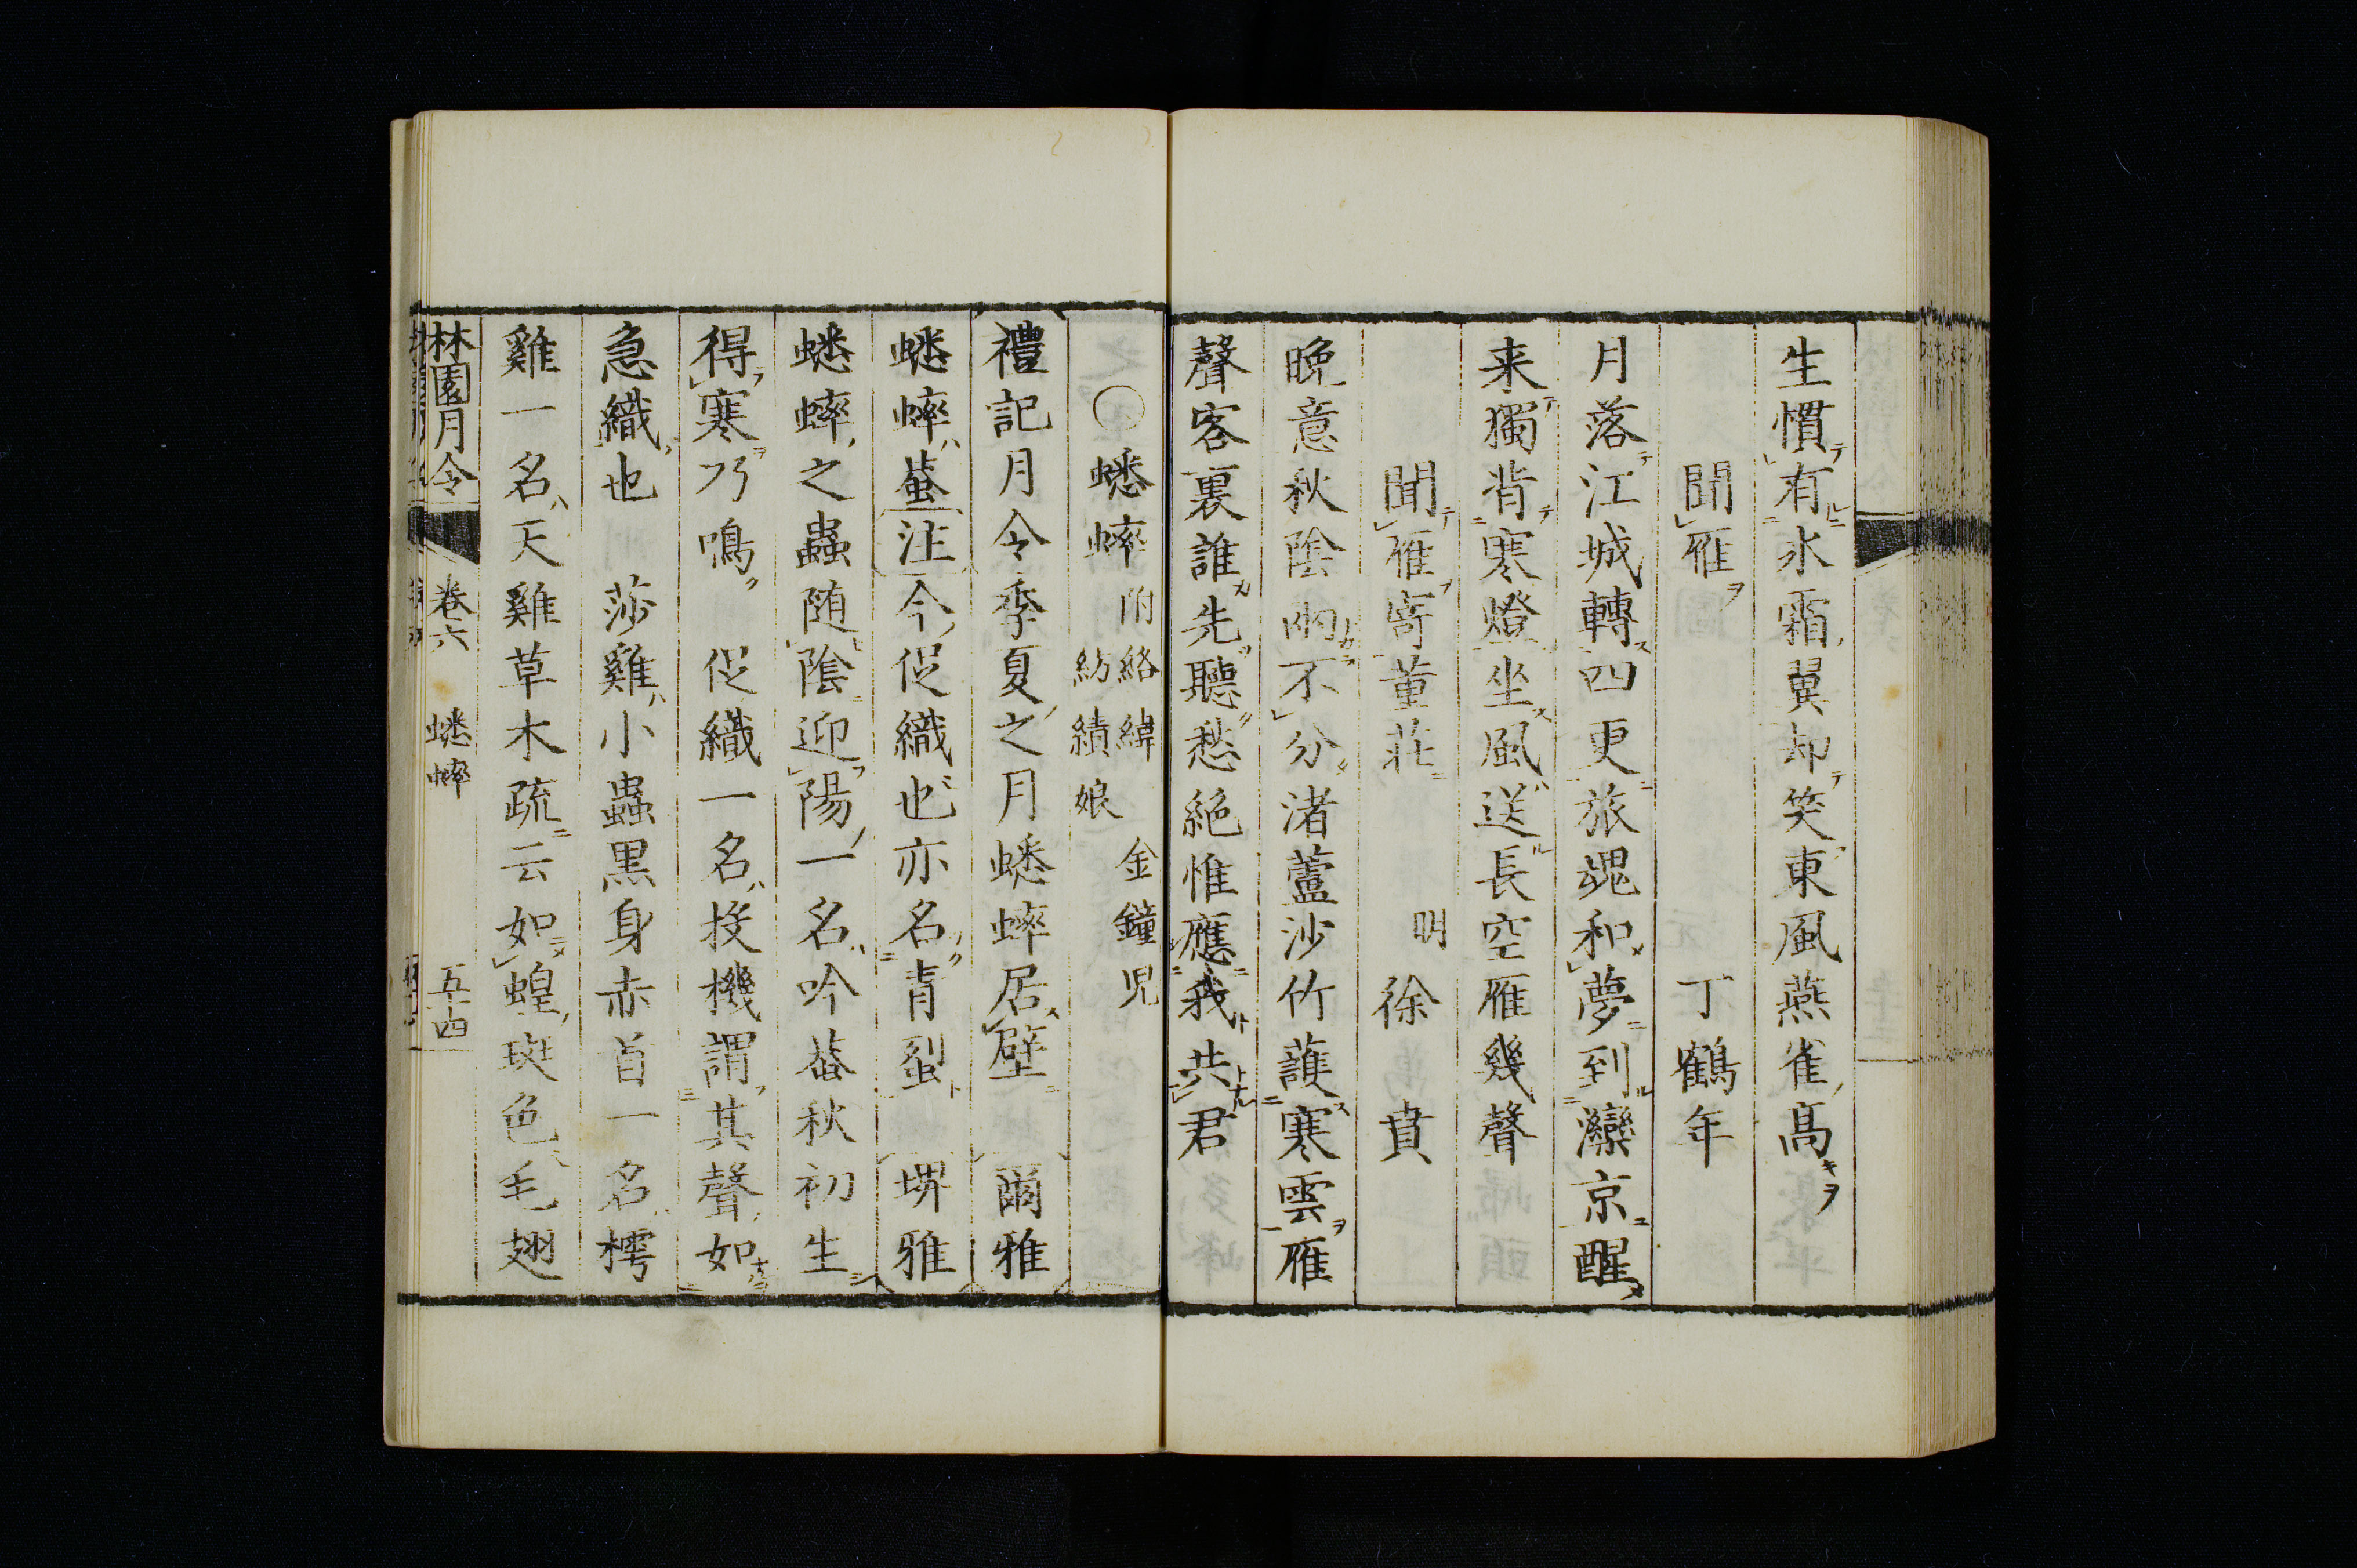 生慣有氷霜翼却笑東風燕雀高
聞雁 丁鶴年
月落江城轉四更旅魂和夢到灤京醒
来獨背寒燈坐風送長空雁幾聲
聞雁寄董莊 明 徐 賁
晩意秋陰雨不分渚蘆沙竹護寒雲雁
聲客裏誰先聽愁絶惟應我共君
○蟋蟀 附絡緯 金鐘児
紡績娘
禮記月令季夏之月蟋蟀居壁 爾雅
蟋蟀蛬注今促織也亦名青𧊿 埤雅
蟋蟀之蟲随陰迎陽一名吟蛬秋初生
得寒乃鳴 促織一名投機謂其聲如
急織也 莎雞小蟲黒身赤首一名樗
雞一名天雞草木疏云如蝗斑色毛翅
林園月令 巻六 蟋蟀 五十四